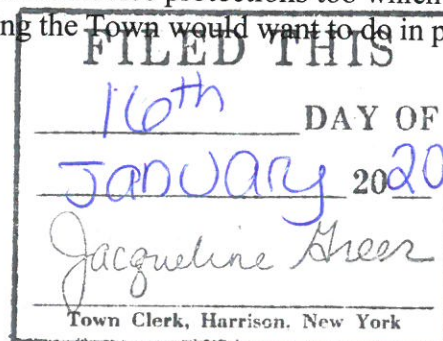 protections too which
ng the Town would want to do in p
FILED THIS
16th DAY OF
January 2020
Jacqueline Greer
Town Clerk, Harrison, New York